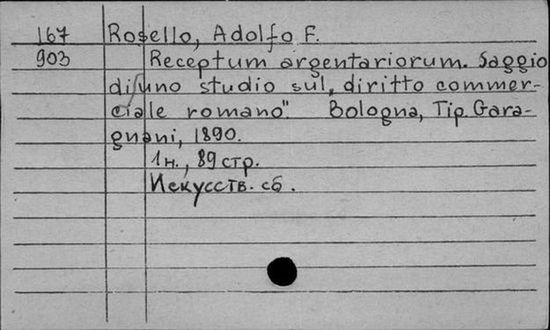 167 Rosello, Adolfo F.
903 Receptum argentariorum. Saggio
di uno studio sul, diritto commer-
ciale romano" Bologna, Tip. Gara-
gnani, 1890.
1н., 89 стр.
Искусств. сб.